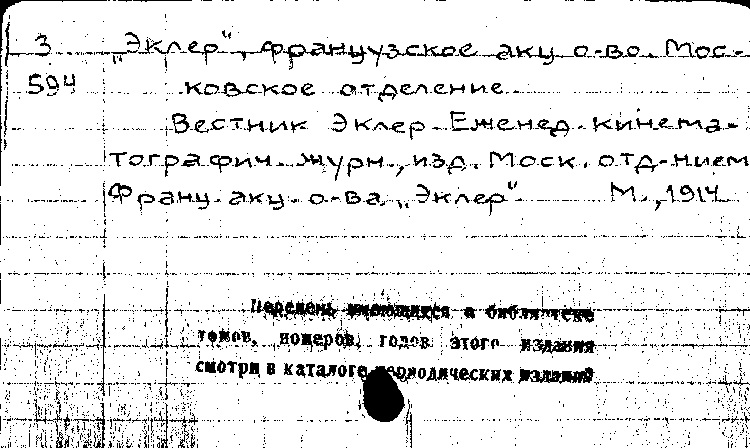 3 „Эклер", французское акц о-во. Мос-
594 ковское отделение
Вестник Эклер. Еженед. кинема-
тографич. журн., изд. Моск. отд-нием
Франц. акц. о-ва „Эклер" М., 1914
Перечень имеющихся в библиотеке
томов, номеров, годов этого издания
смотри в каталоге периодических изданий